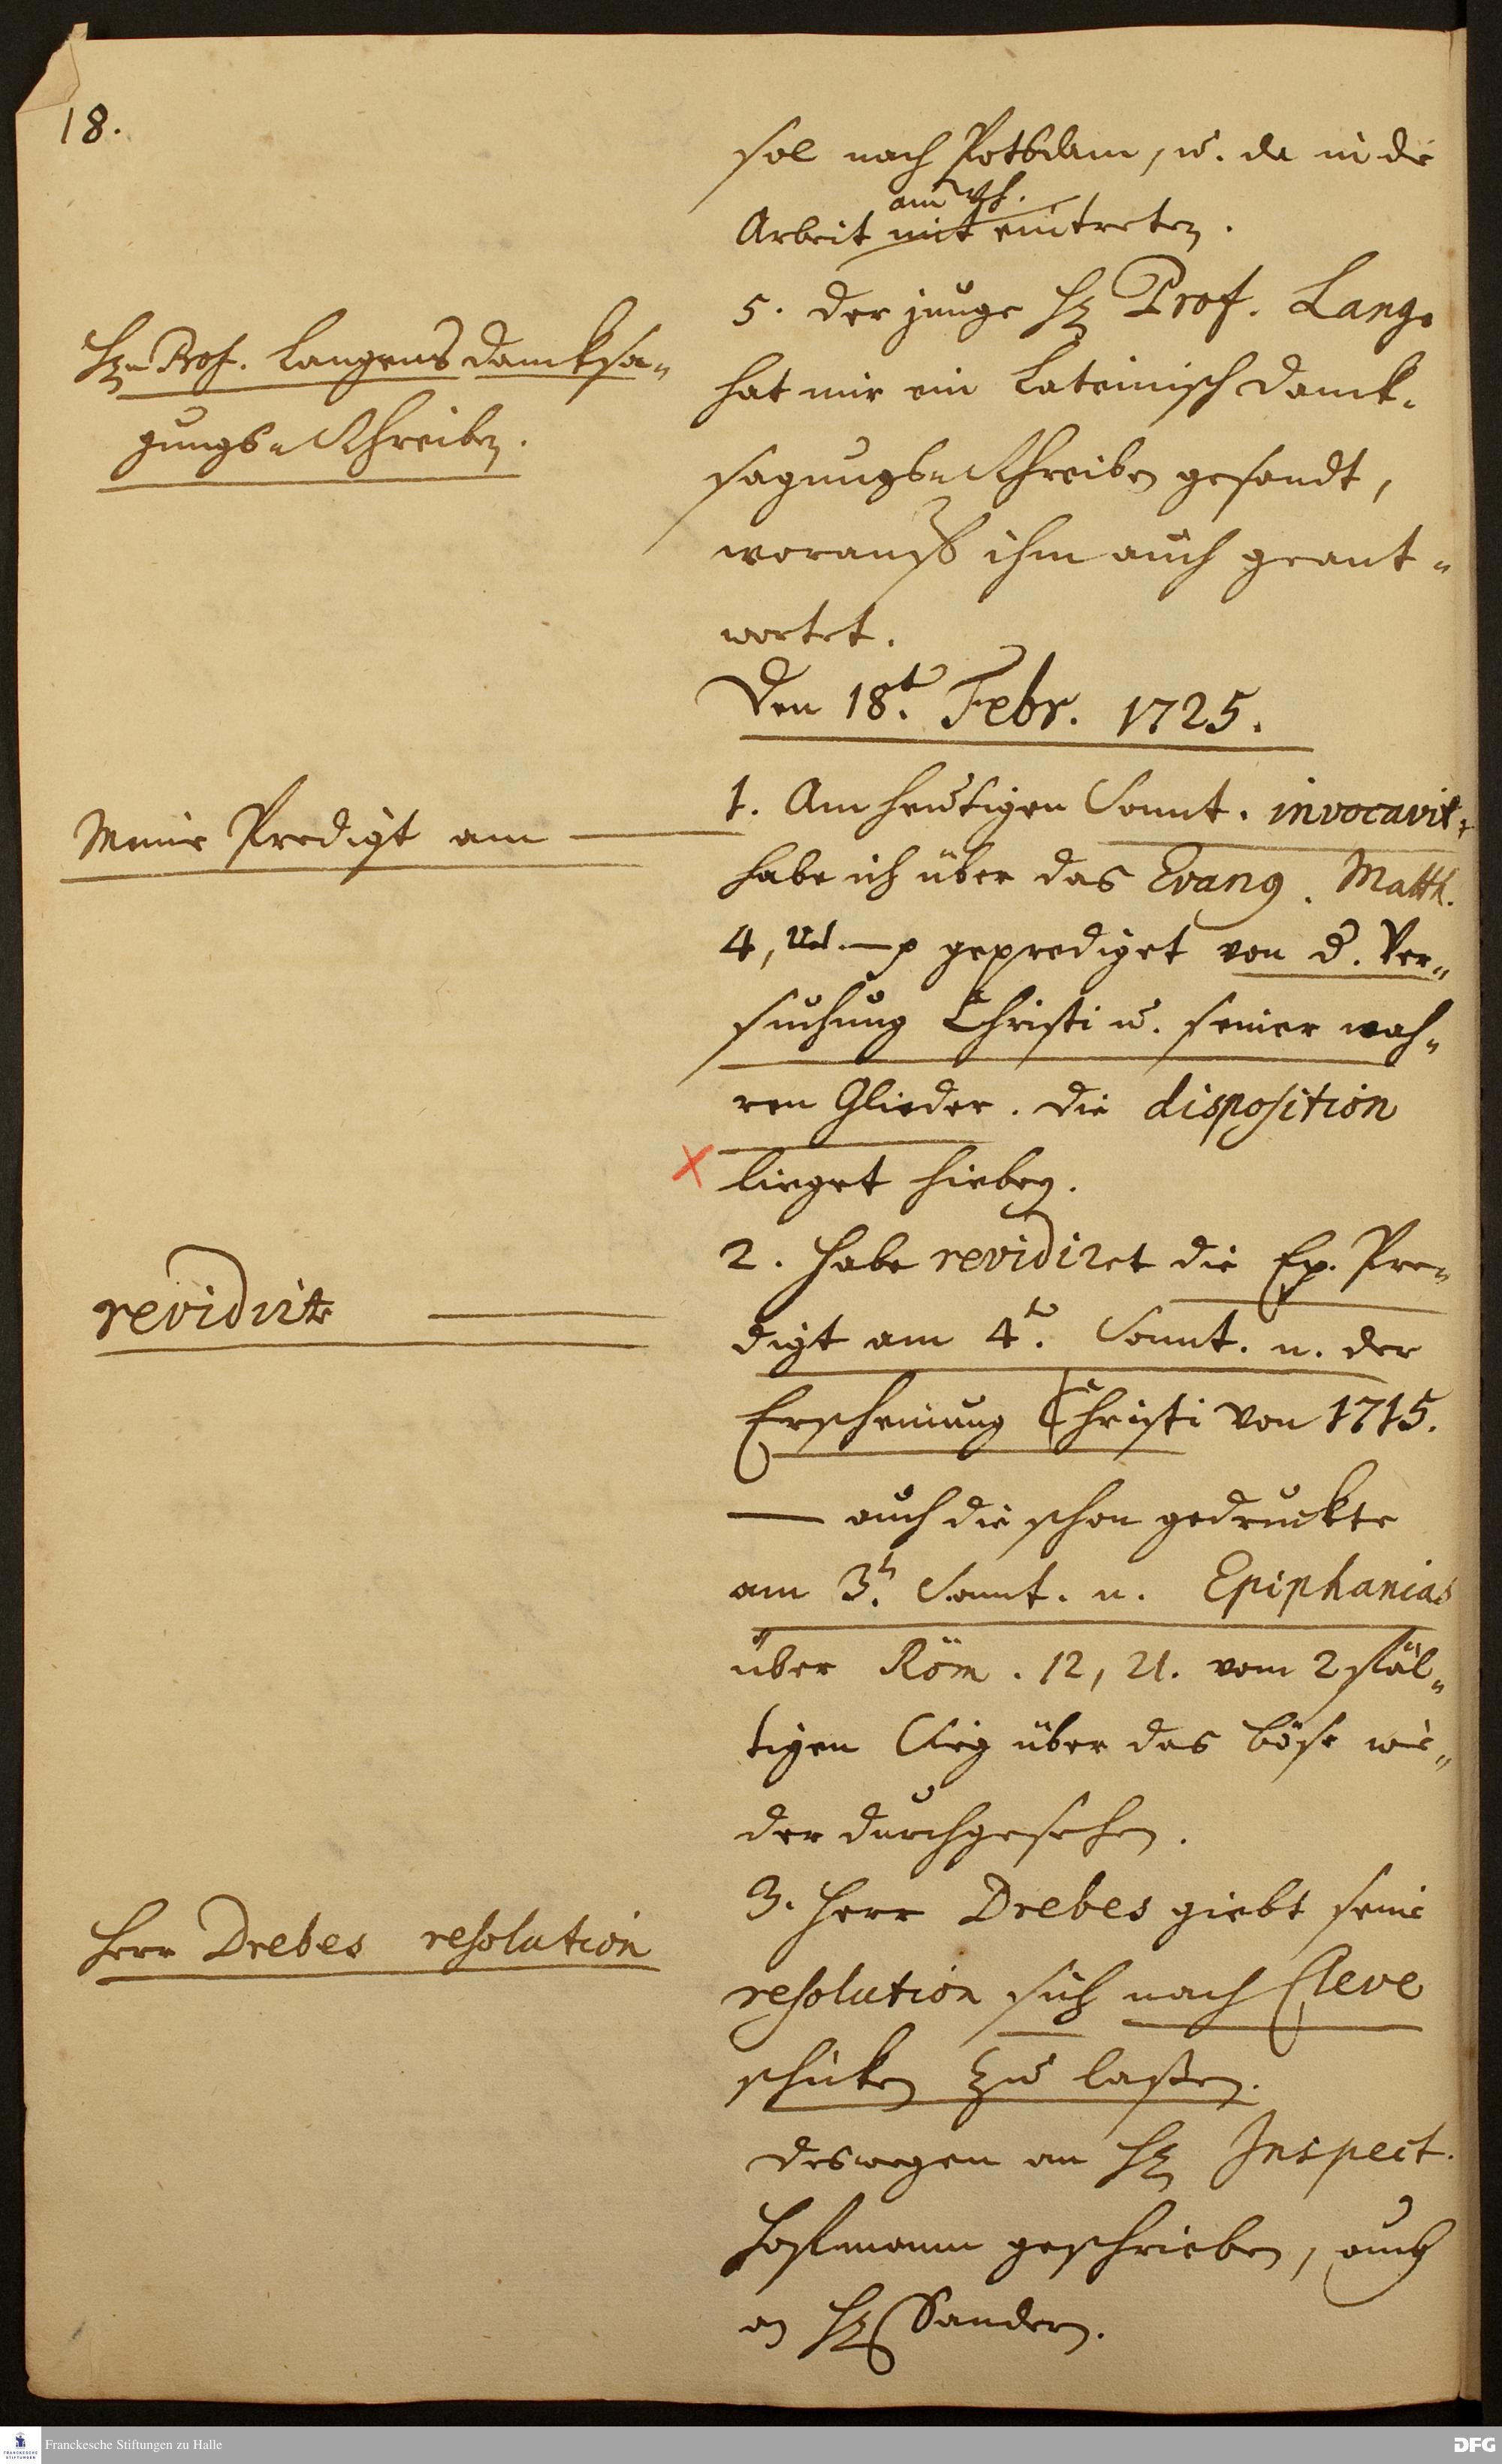 18.
sol nach Potsdam, u. da in die
am
Arbeit mit eintreten.
Hn Prof. Langens dancksa-
gungs-Schreiben.
5. der junge H. Prof. Lange
hat mir ein Lateinisch danck-
sagungs-Schreiben gesandt,
worauff ihm auch geant-
wortet.
Den 18t. Febr. 1725.
Meine Predigt am
1. Am heutigen Sonnt. invocavit
habe ich über das Evang. Matth.
4, geprediget von d. Ver-
suchung Christi u. seiner wah-
ren Glieder. die disposition
lieget hiebey.
revidirte
2. Habe revidiret die Ep. Pre-
digt am 4t. Sonnt. n. der
Erscheinung Christi von 1715.
— auch die schon gedruckte
am 3. Sonnt. n. Epiphanias
über Röm. 12, 21. vom 2fäl-
tigen Sieg über das böse wie-
der durchgesehen.
Herr Drebes resolution
3. Herr Drebes giebt seine
resolution sich nach Cleve
schicken zu laßen.
deswegen an H. Inspect.
Hofmann geschrieben, auch
an H. Sandern.
Franckesche Stiftungen zu Halle
DFG